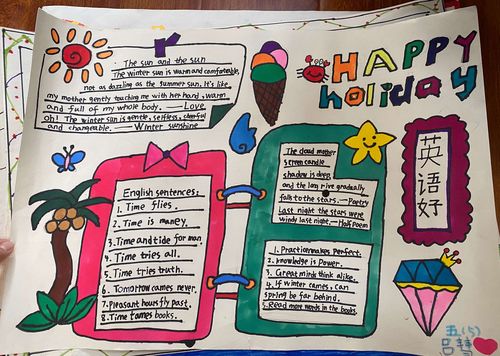 The sun and the sun
The winter sun is warm and comfortable,
not as dazzling as the summer sun. It's like
my mother gently touching me with her hand, warm
and full of my whole body. —— Love
Oh! The winter sun is gentle, selfless, cheerful
and changeable. — Winter sunshine
HAPPY
holiday
英语好
English sentences:
1. Time flies.
2. Time is money.
3. Time and tide for man
4. Time tries all.
5. Time tries truth.
6. Tomorrow comes never.
7. Pleasant hours fly past.
8. Time tames books.
The cloud mother
screen candle
shadow is deep,
and the long rive gradually
falls to the stars. — Poetry
Last night the stars were
windy last night. — Half Poem
1. Practice makes perfect.
2. Knowledge is Power.
3. Great minds think alike.
4. If winter comes, can
spring be far behind.
5. Read more words in the books.
五(5)